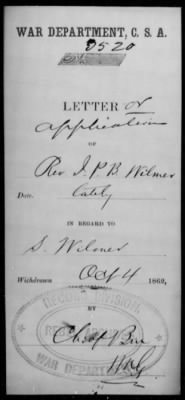 WAR DEPARTMENT, C. S. A.
9520
LETTER or
application
OF
Rev J. P. B. Wilmer
Date.
IN REGARD TO
S. Wilmer
Withdrawn Oct 4 1862,
BY
Chief Bur
RECORD DIVISION
WAR DEPARTMENT